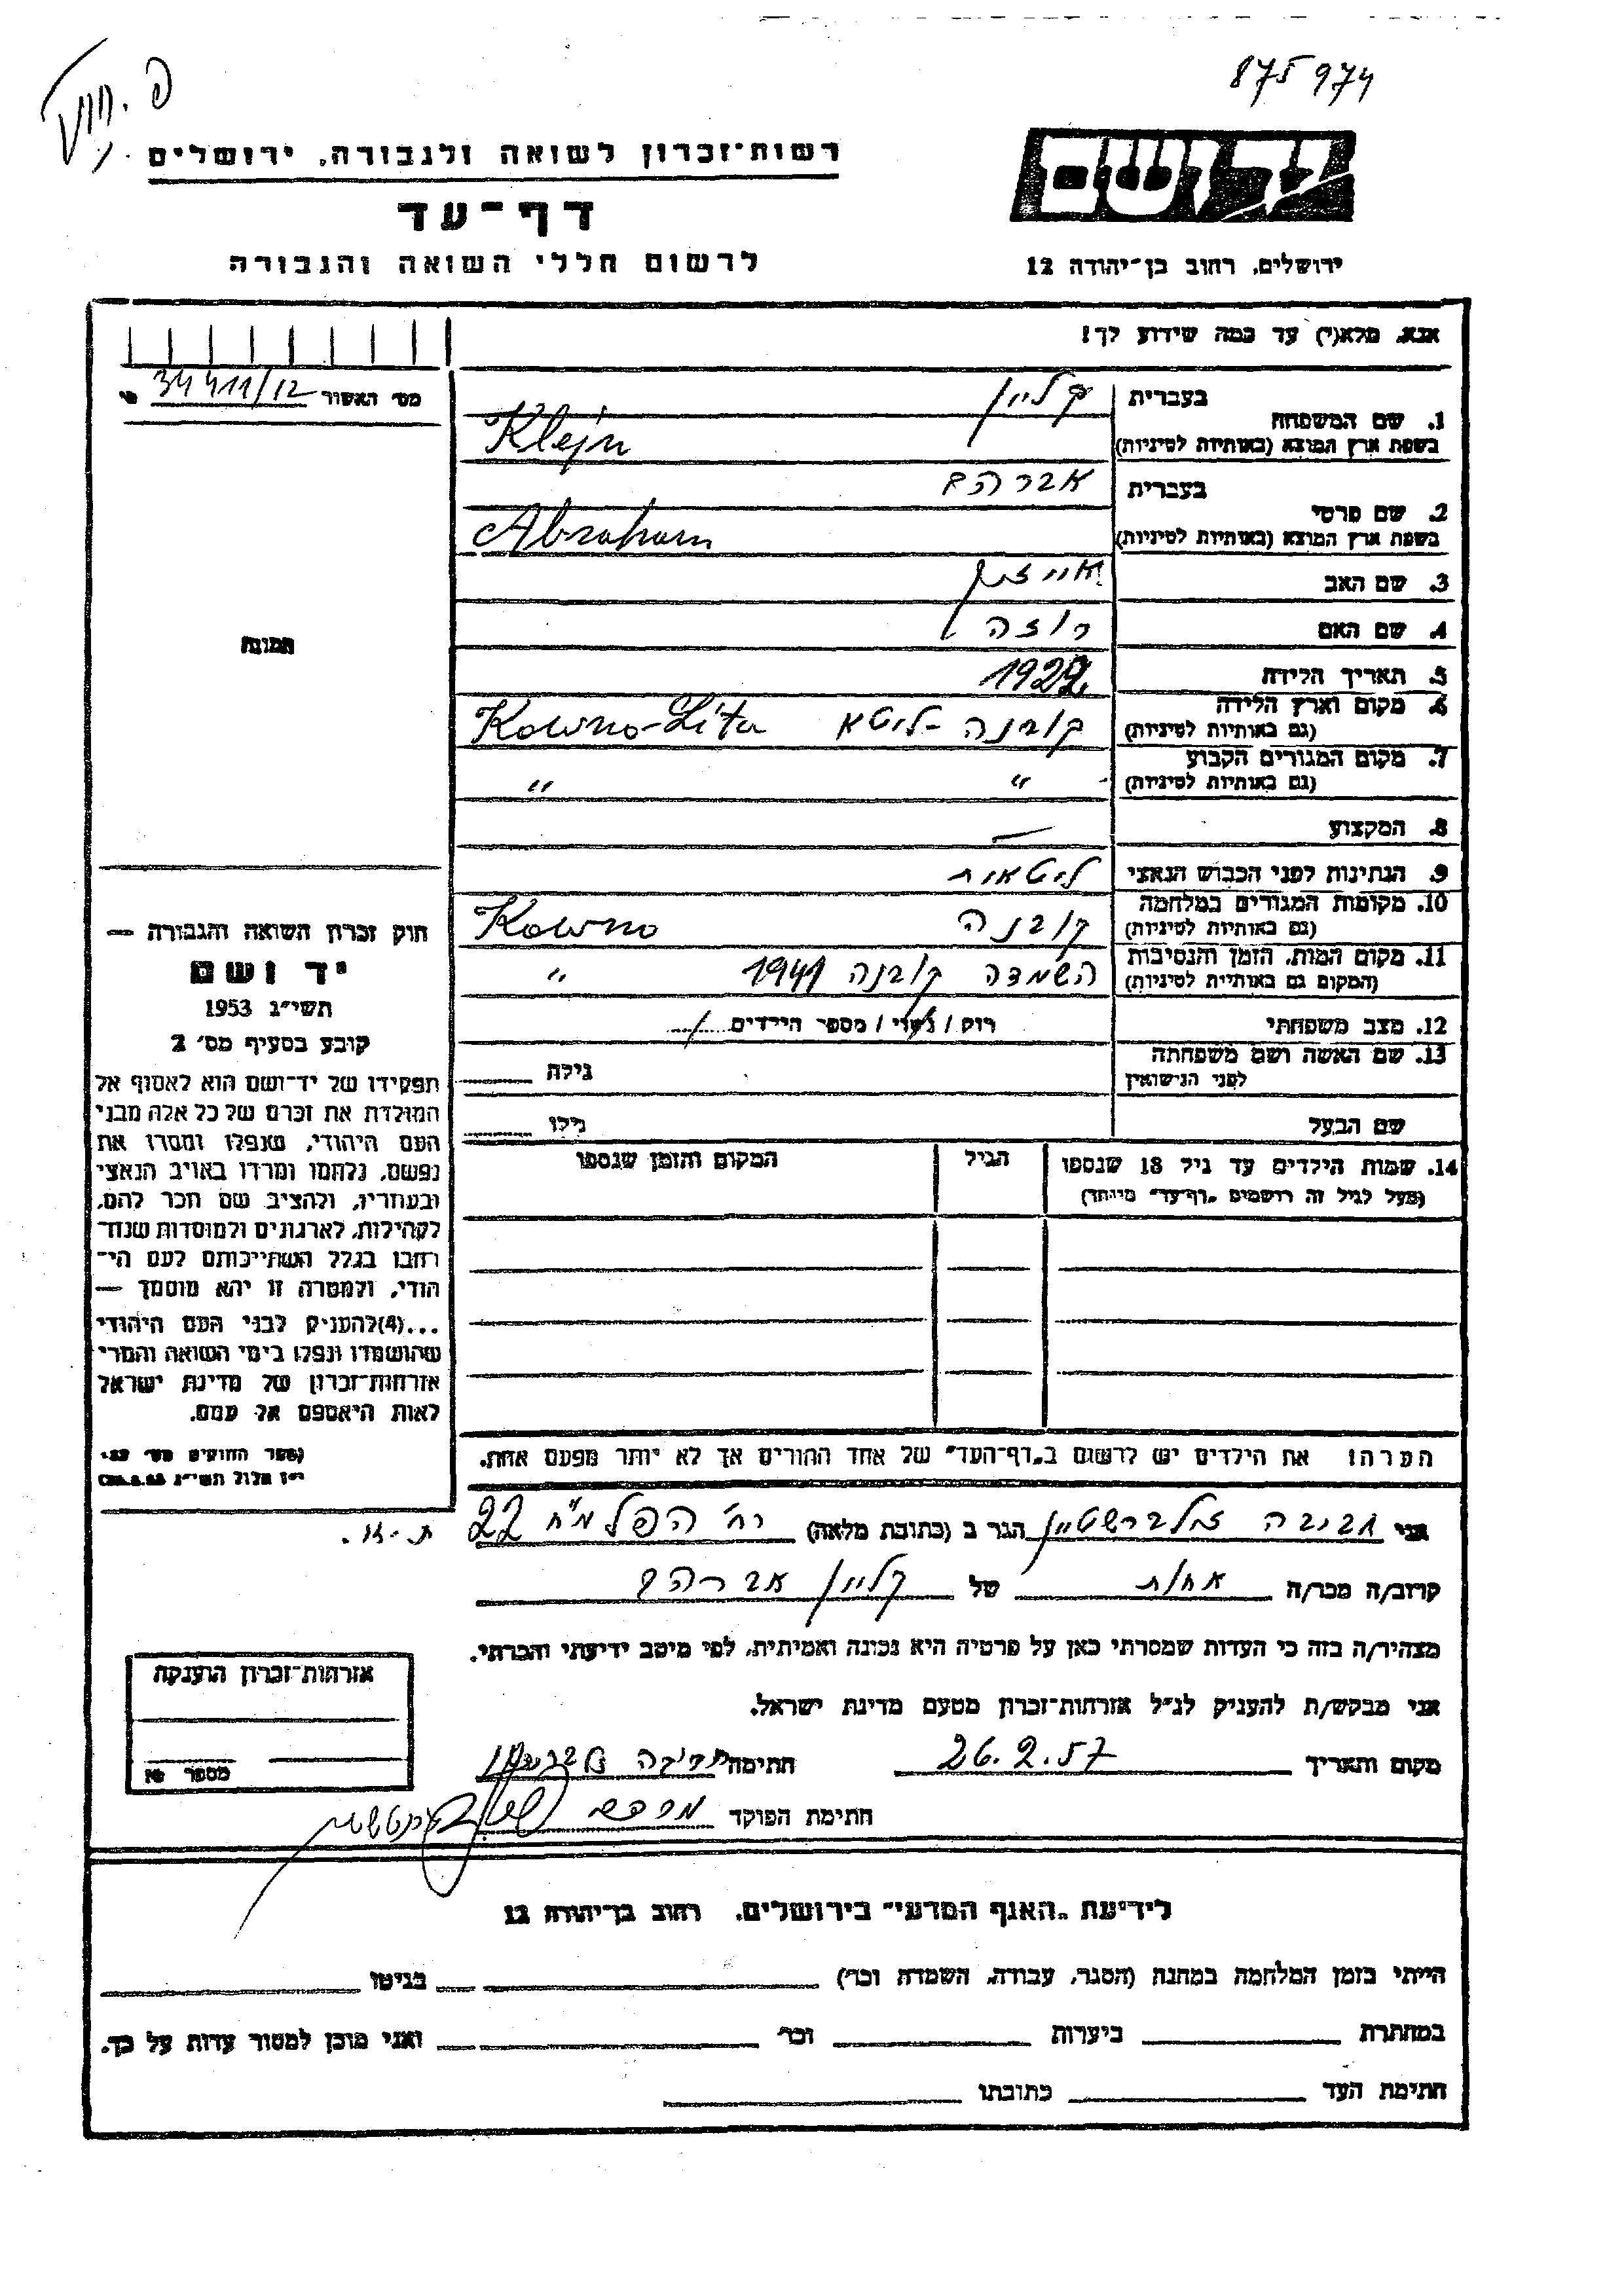 875974
רשות־זכרון לשואה ולגבורה, ירושלים
דף־עד
לרשום חללי השואה והגבורה
יד ושם
ירושלים, רחוב בן־יהודה 12
אנא, מלא(י) עד כמה שידוע לך!
מס׳ האשור 34411/12
1. שם המשפחה בעברית קליין
בשפת ארץ המוצא (באותיות לטיניות) Klejn
2. שם פרטי בעברית אברהם
בשפת ארץ המוצא (באותיות לטיניות) Abraham
3. שם האב אייזיק
4. שם האם רוזה
5. תאריך הלידה
6. מקום וארץ הלידה (גם באותיות לטיניות) קובנה - ליטא Kowno-Lita
7. מקום המגורים הקבוע (גם באותיות לטיניות) " "
8. המקצוע —
9. הנתינות לפני הכבוש הנאצי ליטאית
10. מקומות המגורים במלחמה (גם באותיות לטיניות) קובנה Kowno
11. מקום המות, הזמן והנסיבות (המקום גם באותיות לטיניות) השמדה קובנה 1941 "
12. מצב משפחתי רווק / נשוי / מספר הילדים
13. שם האשה ושם משפחתה לפני הנישואין גילה
שם הבעל גילו
14. שמות הילדים עד גיל 18 שנספו הגיל המקום והזמן שנספו
(מעל לגיל זה רושמים „דף־עד״ מיוחד)
הערה: את הילדים יש לרשום ב„דף־העד״ של אחד ההורים אך לא יותר מפעם אחת.
תמונה
חוק זכרון השואה והגבורה —
יד ושם
תשי״ג 1953
קובע בסעיף מס׳ 2
תפקידו של יד־ושם הוא לאסוף אל
המולדת את זכרם של כל אלה מבני
העם היהודי, שנפלו ומסרו את
נפשם, נלחמו ומרדו באויב הנאצי
ובעוזריו, ולהציב שם וזכר להם,
לקהילות, לארגונים ולמוסדות שנח־
רבו בגלל השתייכותם לעם הי־
הודי, ולמטרה זו יהא מוסמך —
...(4)להעניק לבני העם היהודי
שהושמדו ונפלו בימי השואה והמרי
אזרחות־זכרון של מדינת ישראל
לאות היאספם אל עמם.
(ספר החוקים מס׳ 132,
י״ז אלול תשי״ג 28.8.53)
אני אביבה זילברשטיין הגר ב (כתובת מלאה) רח׳ הפלמ״ח 22 ת-א.
קרוב/ה מכר/ה אחות של קליין אברהם
מצהיר/ה בזה כי העדות שמסרתי כאן על פרטיה היא נכונה ואמיתית, לפי מיטב ידיעתי והכרתי.
אני מבקש/ת להעניק לנ״ל אזרחות־זכרון מטעם מדינת ישראל.
מקום ותאריך 26.2.57 חתימה
חתימת הפוקד
אזרחות־זכרון הוענקה
מספר
לידיעת „האגף המדעי״ בירושלים, רחוב בן־יהודה 12
הייתי בזמן המלחמה במחנה (הסגר, עבודה, השמדה וכד׳) בגיטו
במחתרת ביערות וכד׳ ואני מוכן למסור עדות על כך.
חתימת העד כתובתו